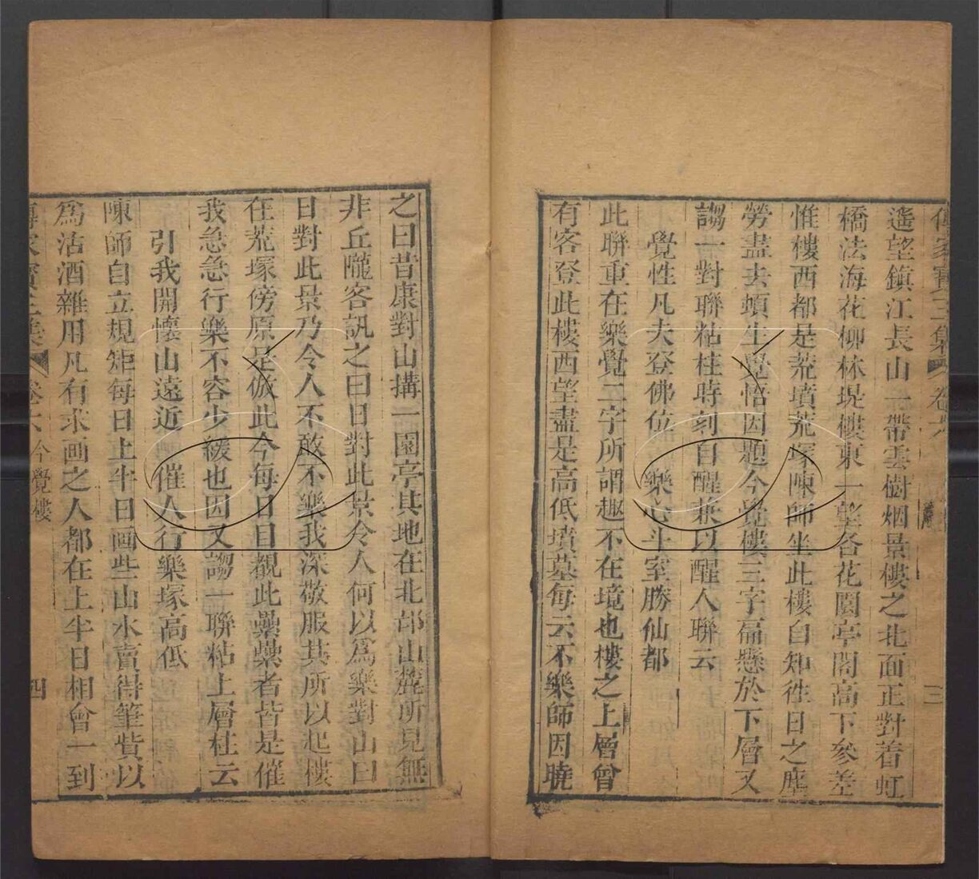 傳家寶三集 卷六 三
遙望鎮江長山一帶雲樹烟景樓之北面正對着虹
橋法海花柳林堤樓東一望各花園亭閣高下參差
惟樓西都是荒墳荒塚陳師坐此樓自知徃日之塵
勞盡去頓生覺悟因題今覺樓三字扁懸於下層又
謅一對聯粘柱時刻自醒兼以醒人聯云
覺性凡夫登佛位 樂心斗室勝仙都
此聯重在樂覺二字所謂趣不在境也樓之上層曾
有客登此樓西望盡是高低墳墓每云不樂師因曉
之曰昔康對山搆一園亭其地在北邙山麓所見無
非丘隴客訊之曰日對此景令人何以爲樂對山曰
日對此景乃令人不敢不樂我深敬服其所以起樓
在荒塚傍原是倣此今每日目覩此纍纍者皆是催
我急急行樂不容少緩也因又謅一聯粘上層柱云
引我開懷山遠近 催人行樂塚高低
陳師自立規矩每日上半日画些山水賣得筆貲以
爲沽酒雜用凡有求画之人都在上半日相會一到
傳家寶三集 卷六 今覺樓 四